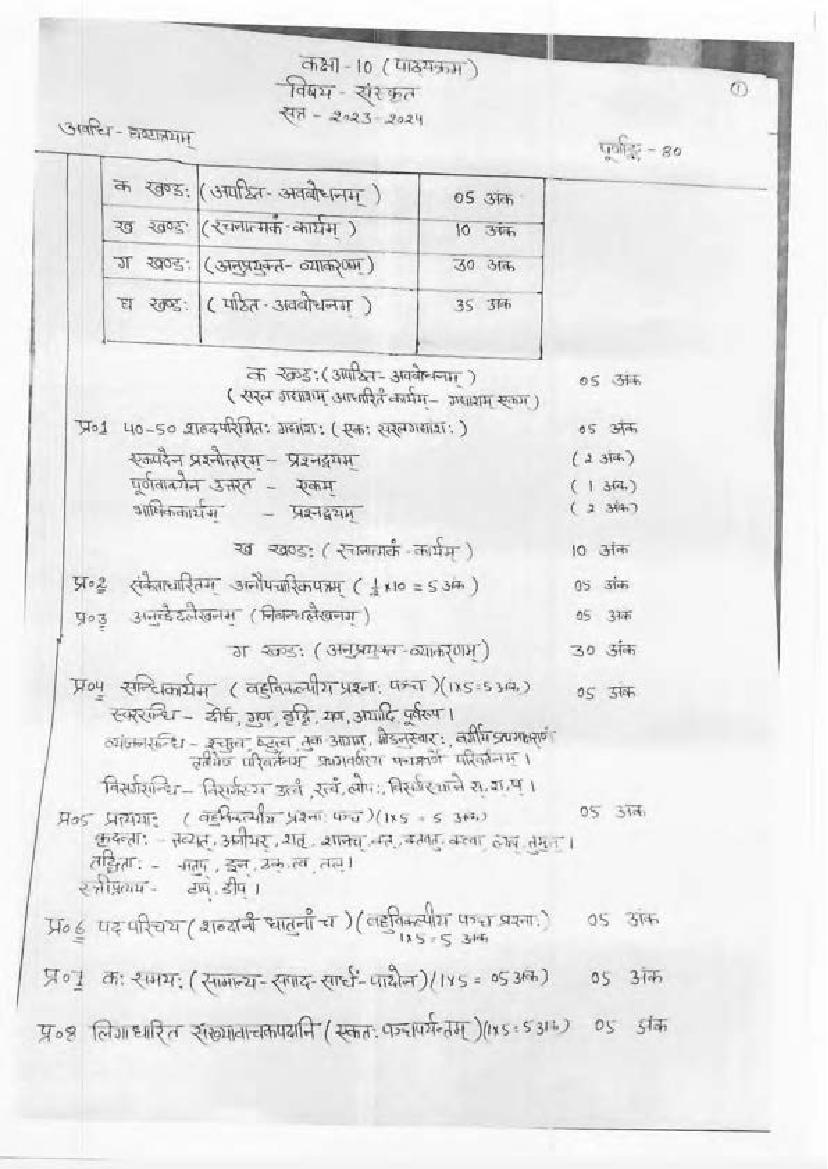 ①
कक्षा - 10 ( पाठ्यक्रम )
विषय - संस्कृत
सत्र - 2023-2024
अवधि - होरात्रयम्
पूर्णाङ्क - 80
क खण्ड: (अपठित- अवबोधनम् ) 05 अंक
ख खण्ड: (रचनात्मकं-कार्यम् ) 10 अंक
ग खण्ड: (अनुप्रयुक्त- व्याकरणम्) 30 अंक
घ खण्ड: ( पठित-अवबोधनम् ) 35 अंक
क खण्ड: (अपठित- अवबोधनम् ) 05 अंक
( सरल गद्यांशम् आधारितं कार्यम्- गद्यांशम् एकम् )
प्र०1 40-50 शब्दपरिमित: गद्यांश: ( एक: सरलगद्यांश: ) 05 अंक
एकपदेन प्रश्नोत्तरम् - प्रश्नद्वयम् ( 2 अंक)
पूर्णवाक्येन उत्तरत - एकम् ( 1 अंक)
भाषिककार्यम् - प्रश्नद्वयम् ( 2 अंक)
ख खण्ड: ( रचनात्मकं - कार्यम् ) 10 अंक
प्र०2 संकेताधारितम् अनौपचारिकपत्रम् ( ½ x10 = 5 अंक ) 05 अंक
प्र०3 अनुच्छेदलेखनम् (निबन्धलेखनम् ) 05 अंक
ग खण्ड: ( अनुप्रयुक्त-व्याकरणम्) 30 अंक
प्र०4 सन्धिकार्यम् ( बहुविकल्पीय प्रश्ना: पञ्च )(1x5=5 अंक) 05 अंक
स्वरसन्धि - दीर्घ, गुण, वृद्धि, यण, अयादि, पूर्वरूप ।
व्यंजनसन्धि - श्चुत्व, ष्टुत्व, तुक् आगम, मोऽनुस्वार:, वर्गीयप्रथमाक्षराणां
तृतीयेण परिवर्तनम् प्रथमवर्णस्य पञ्चमवर्णे परिवर्तनम् ।
विसर्गसन्धि - विसर्गस्य उत्वं, रत्वं, लोप:, विसर्गस्थाने स्, श, ष् ।
प्र०5 प्रत्यया: ( बहुविकल्पीय प्रश्ना: पञ्च )(1x5 = 5 अंक) 05 अंक
कृदन्ता: - तव्यत्, अनीयर्, शतृ, शानच्, क्त, क्तवतु, क्त्वा, ल्यप्, तुमुन् ।
तद्धिता: - मतुप्, इन्, ठक्, त्व, तल् ।
स्त्रीप्रत्यय - टाप्, ङीप् ।
प्र०6 पद परिचय ( शब्दानां धातुनां च ) (बहुविकल्पीय पञ्च प्रश्ना:) 05 अंक
1x5=5 अंक
प्र०7 क: समय: ( सामान्य-सपाद-सार्ध-पादोन)(1x5 = 05 अंक) 05 अंक
प्र०8 लिंगाधारित संख्यावाचकपदानि ( एकत: पञ्चपर्यन्तम् )(1x5=5 अंक) 05 अंक